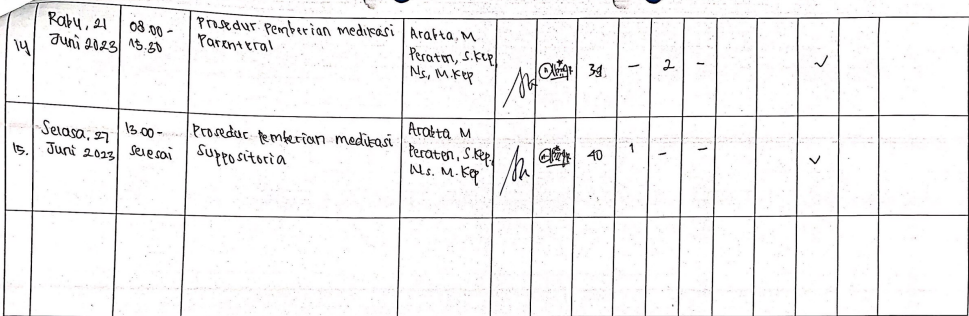 14
Rabu, 21
Juni 2023
08.00 -
15.30
Prosedur pemberian medikasi
Parenteral
Arabta, M
Peraten, S.Kep,
Ns, M.Kep
39 - 2 - ✓
15.
Selasa, 27
Juni 2023
13.00 -
selesai
Prosedur pemberian medikasi
Suppositoria
Arabta M
Peraten, S.Kep,
Ns. M.Kep
40 1 - - ✓